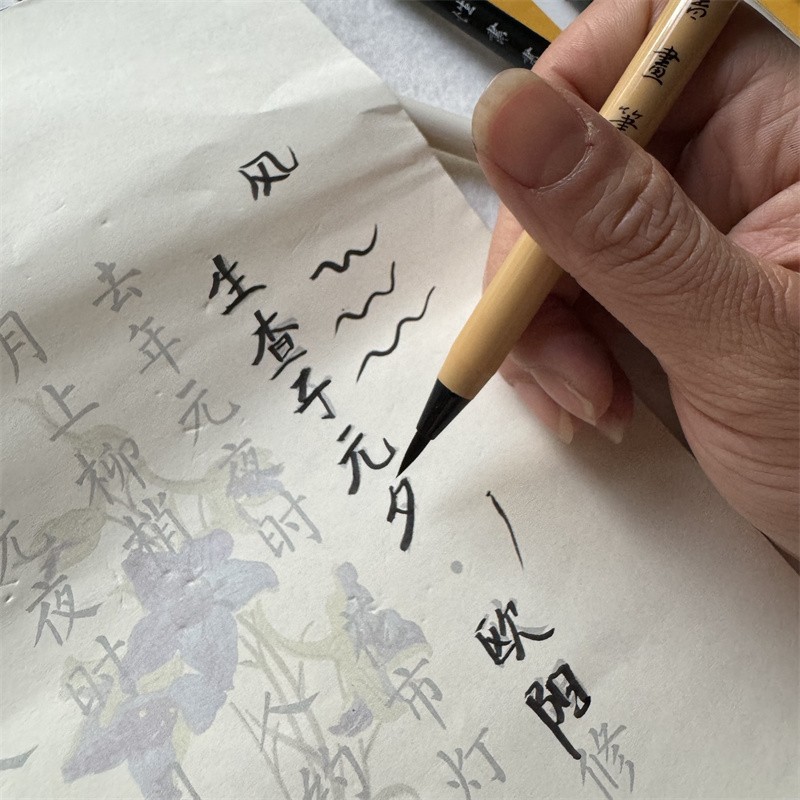 畫筆
风
生查子元夕·欧阳修
去年元夜时花市灯
月上柳梢
人约
元夜时